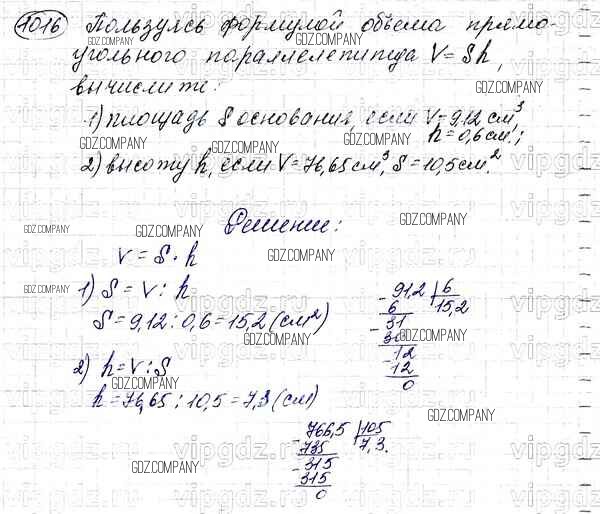 1016 Пользуясь формулой объема прямо-
угольного параллелепипеда V = Sh,
вычислите:
1) площадь S основания, если V = 9,12 см³
h = 0,6 см;
2) высоту h, если V = 76,65 см³, S = 10,5 см².
Решение:
V = S · h
1) S = V : h
S = 9,12 : 0,6 = 15,2 (см²)
91,2 | 6
6 15,2
- 31
30
- 12
12
0
2) h = V : S
h = 76,65 : 10,5 = 7,3 (см)
766,5 | 105
735 7,3.
- 315
315
0
GDZ.COMPANY
vipgdz.ru